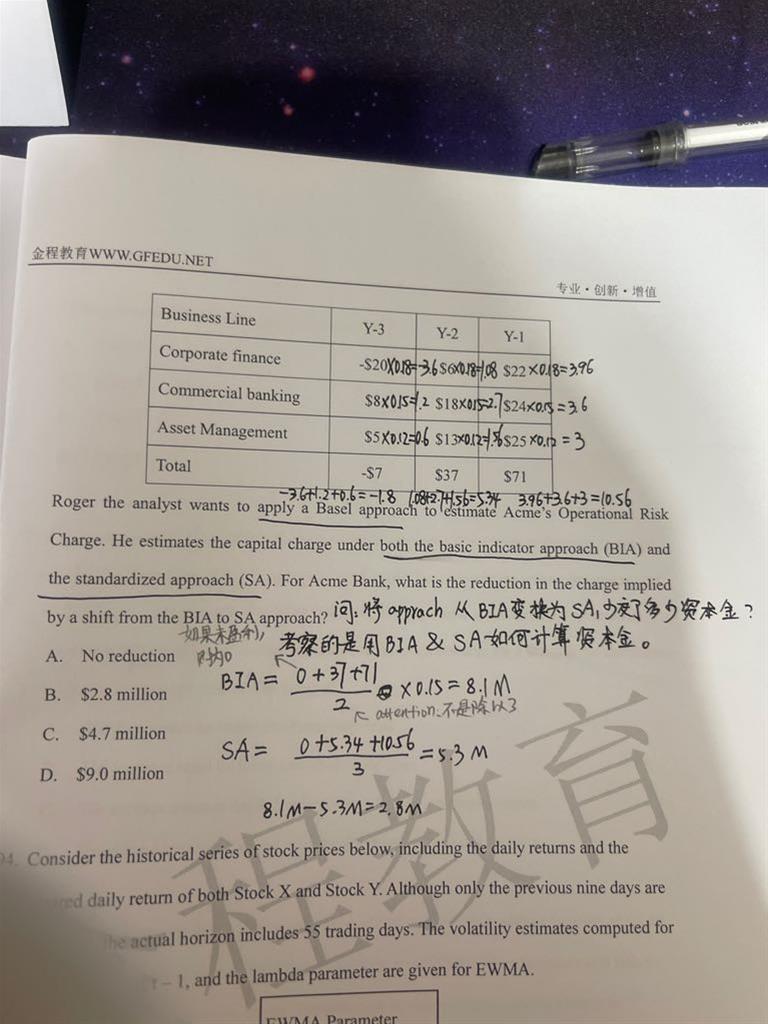 金程教育WWW.GFEDU.NET
专业·创新·增值
Business Line Y-3 Y-2 Y-1
Corporate finance -$20×0.18=-3.6 $6×0.18=1.08 $22×0.18=3.96
Commercial banking $8×0.15=1.2 $18×0.15=2.7 $24×0.15=3.6
Asset Management $5×0.12=0.6 $13×0.12=1.56 $25×0.12=3
Total -$7 $37 $71
-3.6+1.2+0.6=-1.8 1.08+2.7+1.56=5.34 3.96+3.6+3=10.56
Roger the analyst wants to apply a Basel approach to estimate Acme's Operational Risk
Charge. He estimates the capital charge under both the basic indicator approach (BIA) and
the standardized approach (SA). For Acme Bank, what is the reduction in the charge implied
by a shift from the BIA to SA approach? 问:将apprach 从BIA变换为SA,少了多少资本金?
如果未盈利, 考察的是用BIA & SA如何计算资本金。
A. No reduction 则为0
BIA= 0+37+71 / 2 ×0.15=8.1M
B. $2.8 million
attention.不是除以3
C. $4.7 million
SA= 0+5.34+10.56 / 3 =5.3M
D. $9.0 million
8.1M-5.3M=2.8M
程教育
94. Consider the historical series of stock prices below, including the daily returns and the
daily return of both Stock X and Stock Y. Although only the previous nine days are
actual horizon includes 55 trading days. The volatility estimates computed for
t – 1, and the lambda parameter are given for EWMA.
EWMA Parameter